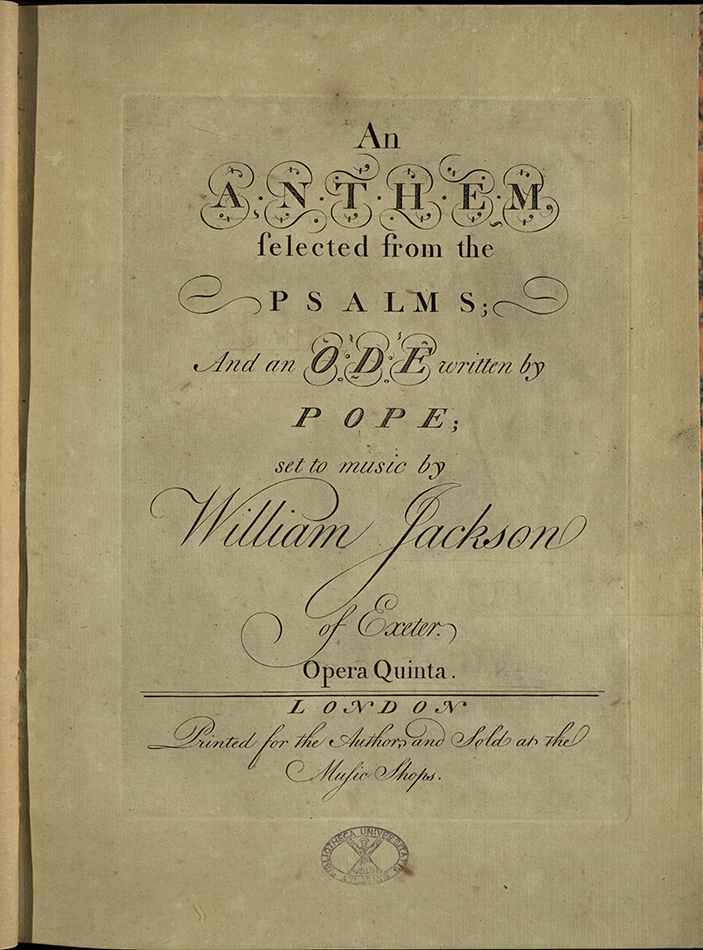 An
A·N·T·H·E·M,
ſelected from the
PSALMS;
And an O·D·E written by
POPE;
set to music by
William Jackson
of Exeter.
Opera Quinta.
LONDON
Printed for the Author, and Sold at the
Muſic Shops.
BIBLIOTHECA UNIVERSITATIS